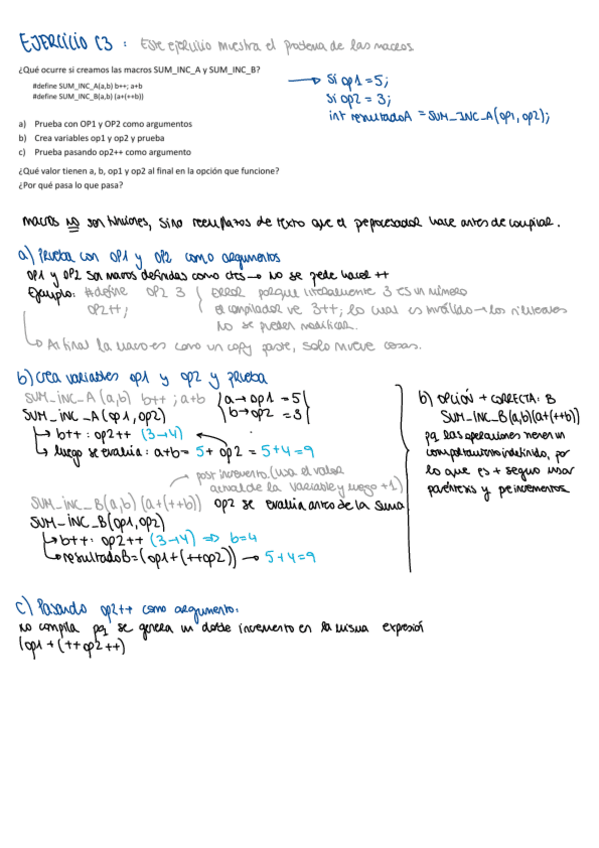 EJERCICIO C3 : Este ejercicio muestra el problema de las macros
¿Qué ocurre si creamos las macros SUM_INC_A y SUM_INC_B?
#define SUM_INC_A(a,b) b++; a+b
#define SUM_INC_B(a,b) (a+(++b))
→ Si op1 = 5;
Si op2 = 3;
int resultadoA = SUM_INC_A(op1, op2);
a) Prueba con OP1 y OP2 como argumentos
b) Crea variables op1 y op2 y prueba
c) Prueba pasando op2++ como argumento
¿Qué valor tienen a, b, op1 y op2 al final en la opción que funcione?
¿Por qué pasa lo que pasa?
macros no son funciones, sino reemplazos de texto que el peprocesador hace antes de compilar.
a) Prueba con OP1 y OP2 como argumentos
OP1 y OP2 son macros definidas como ctes → no se pede hacer ++
Ejemplo: #define OP2 3 { Error porque literalmente 3 es un número
OP2++; el compilador ve 3++; lo cual es inválido → los
no se pueden modificar.
↳ Al final la macro es como un copy paste, solo mueve cosas.
b) Crea variables op1 y op2 y prueba
SUM_INC_A (a,b) b++ ; a+b { a → op1 = 5
SUM_INC_A (op1, op2) b → op2 = 3 }
↳ b++ : op2++ (3→4)
↳ luego se evalúa : a+b = 5 + op2 = 5+4 = 9
→ post incremento. (usa el valor
actual de la variable y luego +1)
SUM_INC_B(a,b) (a+(++b)) op2 se evalúa antes de la suma
SUM_INC_B(op1, op2)
↳ b++: op2++ (3→4) ⇒ b=4
↳ resultadoB = (op1+(++op2)) → 5+4=9
b) OPCIÓN + CORRECTA: B
SUM_INC_B(a,b)(a+(++b))
pq las operaciones tienen un
comportamiento indefinido, por
lo que es + seguro usar
paréntesis y preincrementos
c) Pasando op2++ como argumento:
no compila pq se genera un doble incremento en la misma expresión
(op1 + (++op2++)